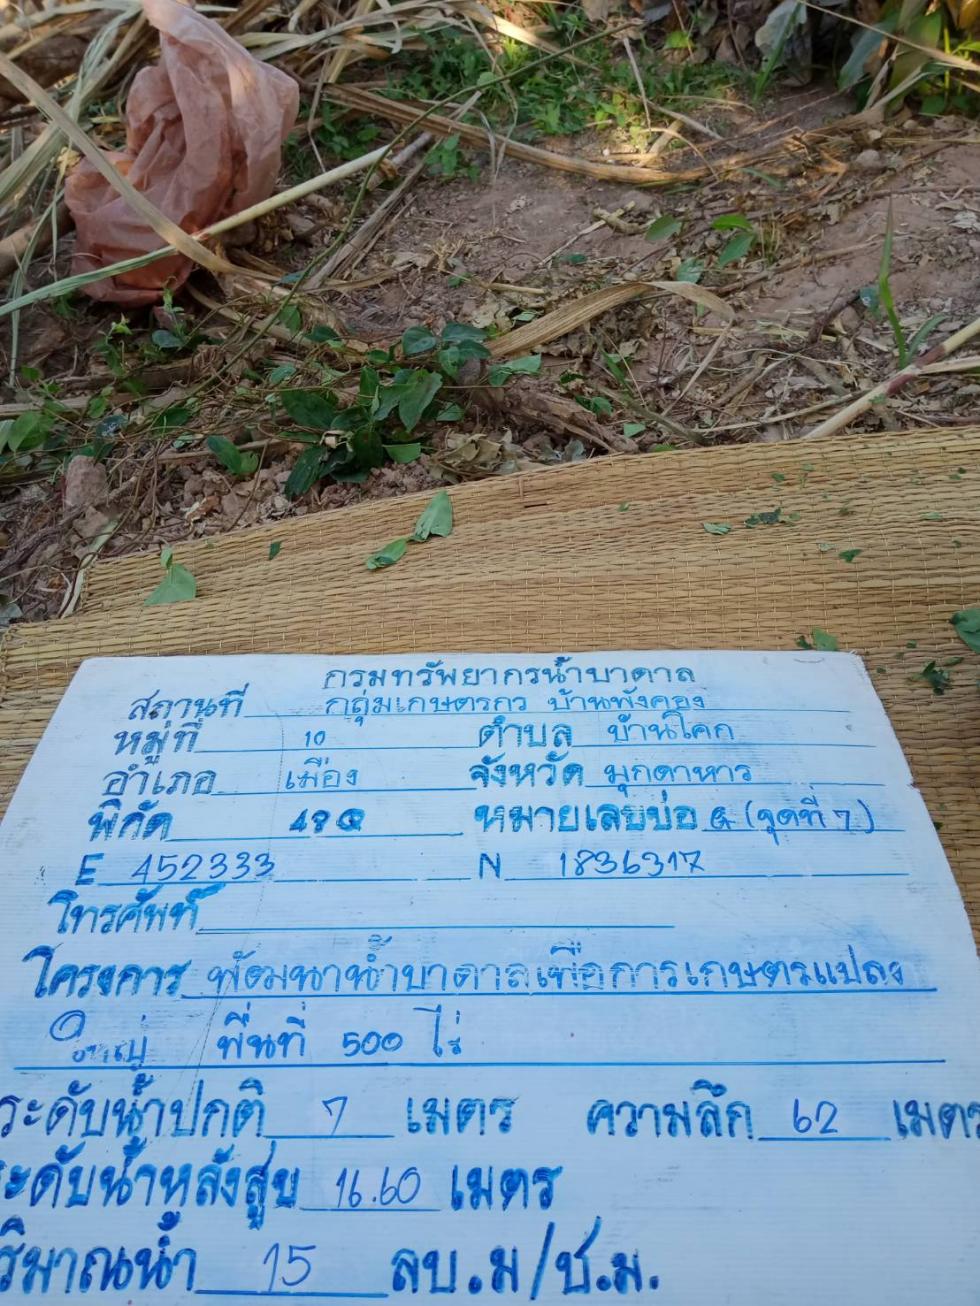 กรมทรัพยากรน้ำบาดาล
สถานที่ กลุ่มเกษตรกร บ้านพังคอง
หมู่ที่ 10 ตำบล บ้านโคก
อำเภอ เมือง จังหวัด มุกดาหาร
พิกัด 48Q หมายเลขบ่อ G (จุดที่ 7)
E 452333 N 1836317
โทรศัพท์
โครงการ พัฒนาน้ำบาดาลเพื่อการเกษตรแปลง
ใหญ่ พื้นที่ 500 ไร่
ระดับน้ำปกติ 7 เมตร ความลึก 62 เมตร
ระดับน้ำหลังสูบ 16.60 เมตร
ปริมาณน้ำ 15 ลบ.ม/ช.ม.